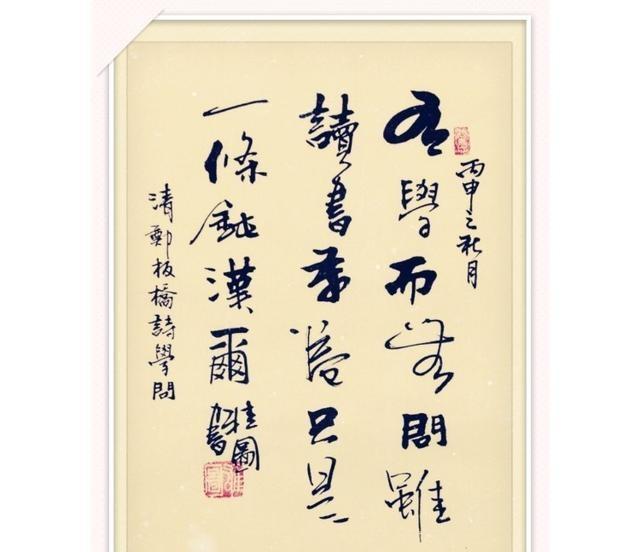 丙申之秋月
有學而無問雖
讀書萬卷只是
一條鈍漢爾
清鄭板橋詩學問